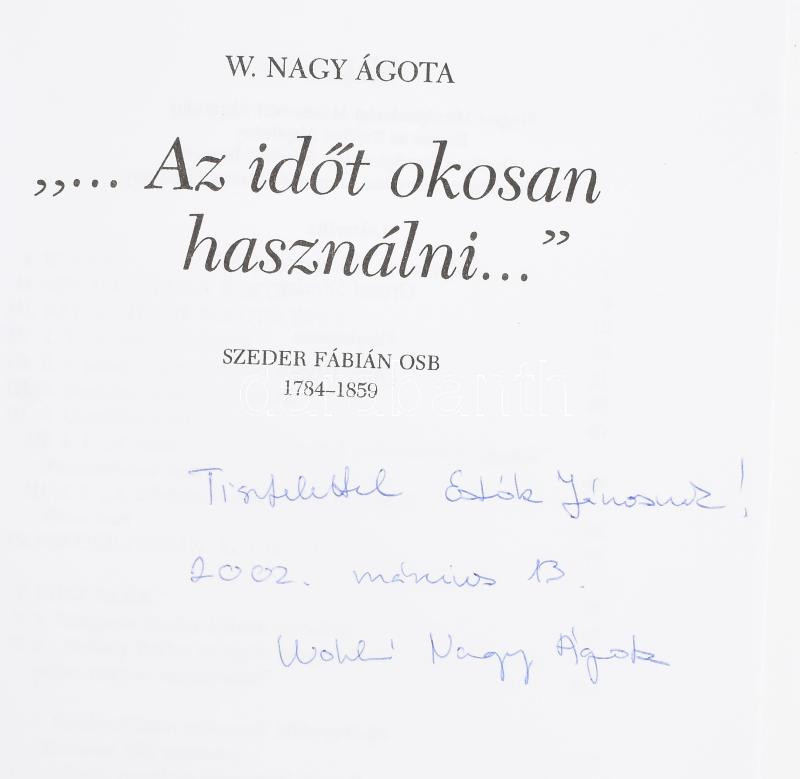 W. NAGY ÁGOTA
„... Az időt okosan
használni...”
SZEDER FÁBIÁN OSB
1784–1859
darabanth
Tisztelettel Estók Jánosnak!
2002. március 13.
Wohl Nagy Ágota